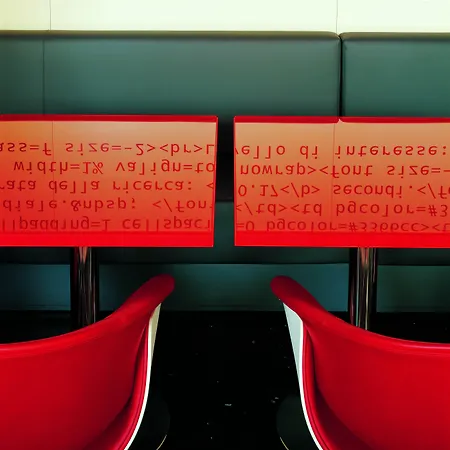 ass=f size=-2><br>L
width=1% valign=to
rata della ricerca: <
diale.&nbsp; </fon
llpadding=1 cellspac
vello di interesse:
nowrap><font size=-
0.17</b> secondi.</f
</td><td bgcolor=#3
=0 bgcolor=#3366cc><t